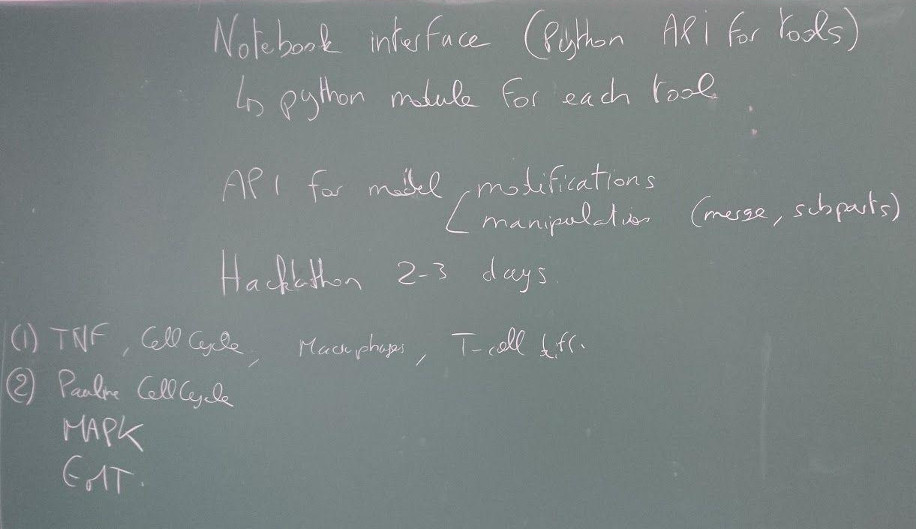 Notebook interface (Python API for tools)
↳ python module for each tool
API for model modifications
manipulation (merge, subparts)
Hackathon 2-3 days
(1) TNF, Cell Cycle, Macrophages, T-cell diff.
(2) Pauline Cell Cycle
MAPK
EMT.